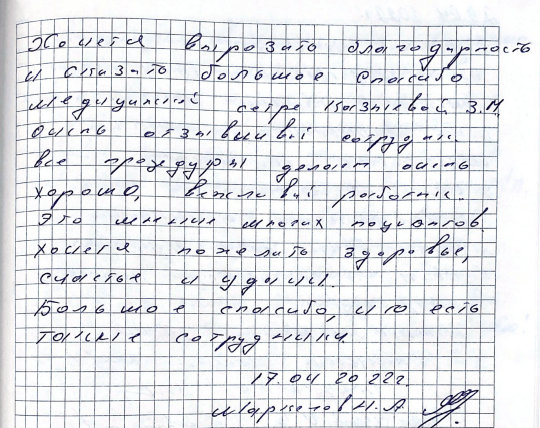 Хочется выразить благодарность
и сказать большое спасибо
медицинской сетре Казневой З.М.
Очень отзывывий сотрудник.
все процедуры делает очень
хорошо, вежливый работник.
Это мнение многих пациентов.
хочется пожелать здоровье,
счастье и удачи.
Большое спасибо, что есть
такие сотрудники
17.04 2022г.
Маркелов Н.А